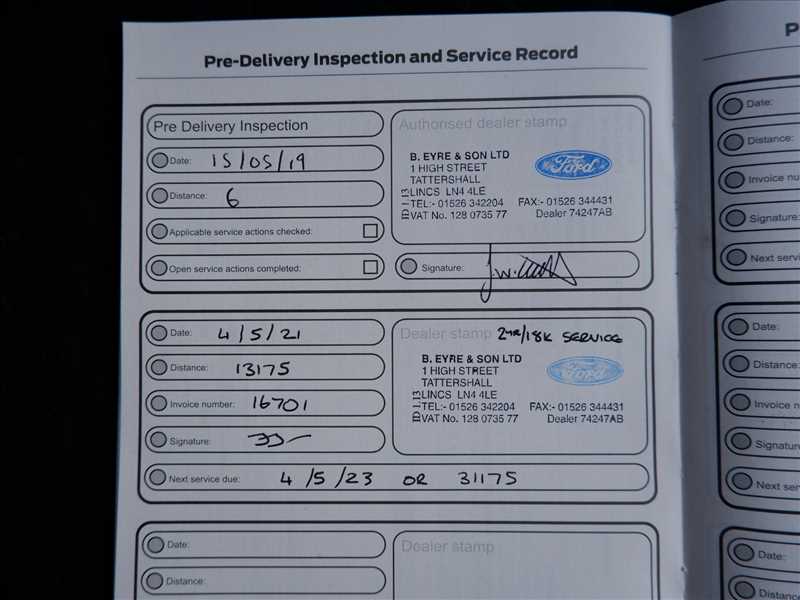 Pre-Delivery Inspection and Service Record
Pre Delivery Inspection
Date: 15/05/19
Distance: 6
Applicable service actions checked:
Open service actions completed:
Authorised dealer stamp
B. EYRE & SON LTD
1 HIGH STREET
TATTERSHALL
LINCS LN4 4LE
TEL:- 01526 342204 FAX:- 01526 344431
VAT No. 128 0735 77 Dealer 74247AB
Ford
Signature:
Date: 4/5/21
Distance: 13175
Invoice number: 16701
Signature:
Dealer stamp 2YR/18K SERVICE
B. EYRE & SON LTD
1 HIGH STREET
TATTERSHALL
LINCS LN4 4LE
TEL:- 01526 342204 FAX:- 01526 344431
VAT No. 128 0735 77 Dealer 74247AB
Ford
Next service due: 4/5/23 OR 31175
Date:
Distance:
Dealer stamp
P
Date:
Distance:
Invoice nu
Signature:
Next servi
Date:
Distance:
Invoice n
Signature
Next serv
Date:
Distance: